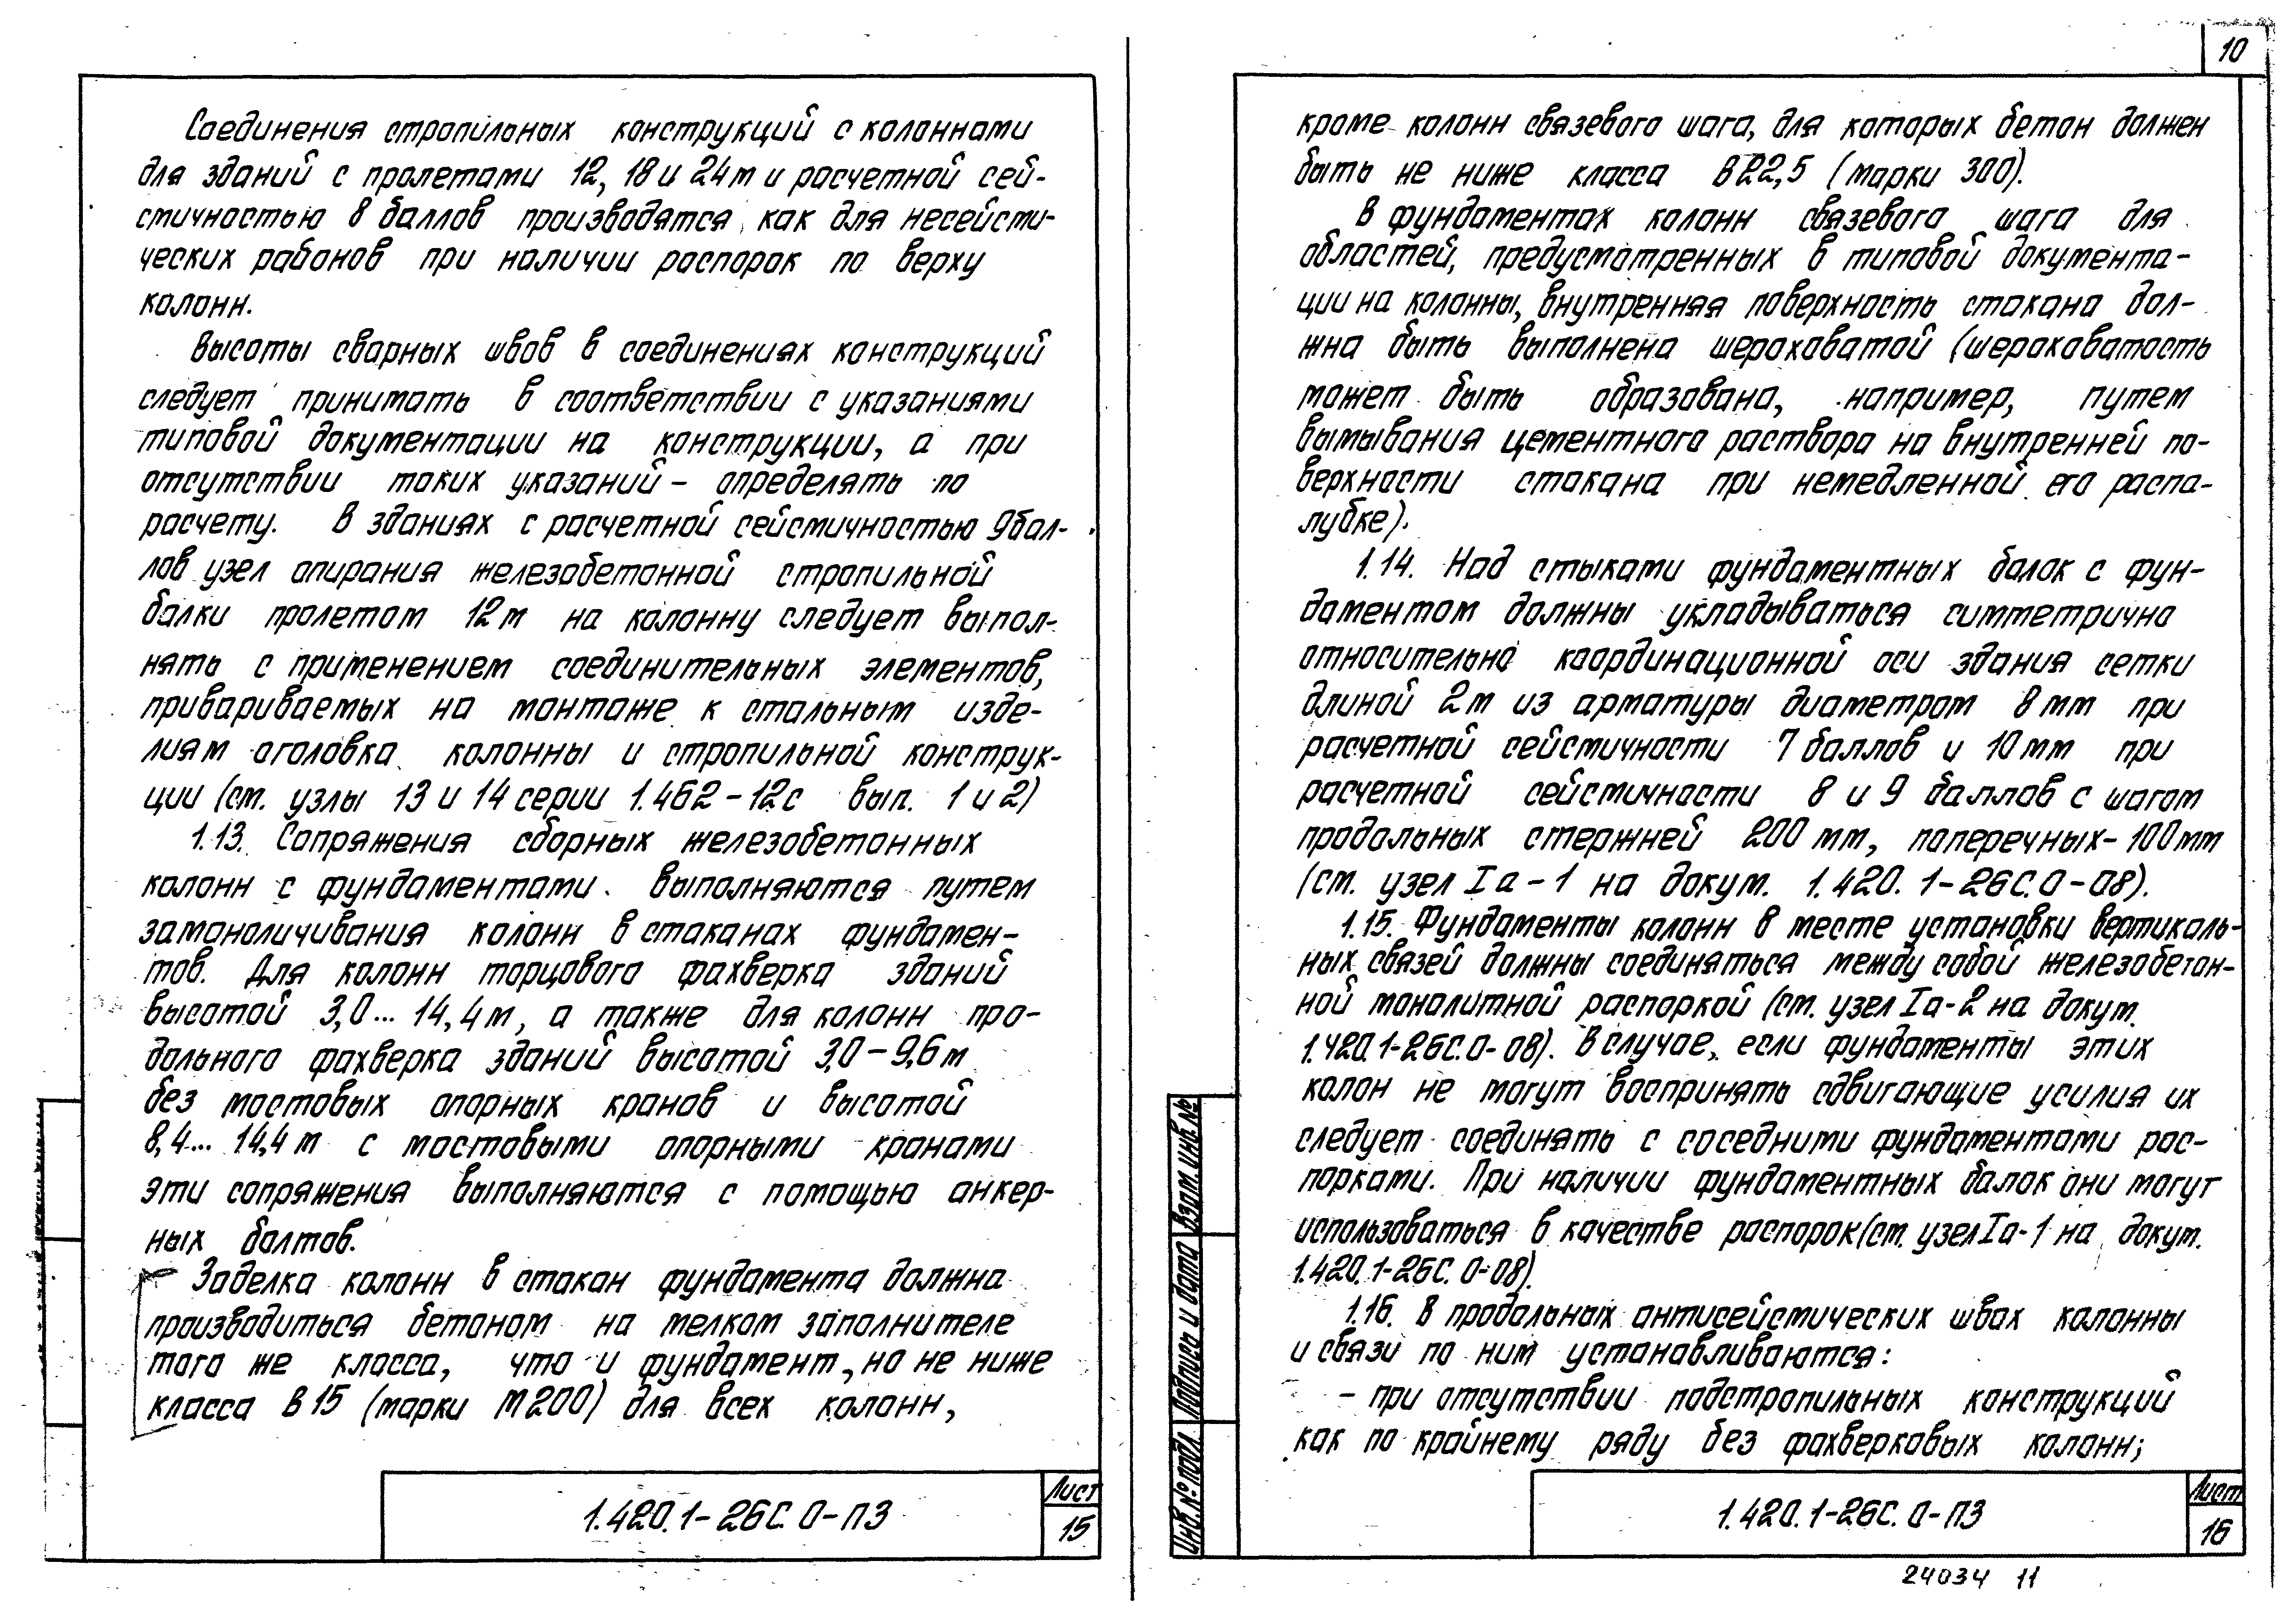 Соединения стропильных конструкций с колоннами
для зданий с пролетами 12, 18 и 24 м и расчетной сей-
смичностью 8 баллов производятся как для несейсми-
ческих районов при наличии распорок по верху
колонн.
Высоты сварных швов в соединениях конструкций
следует принимать в соответствии с указаниями
типовой документации на конструкции, а при
отсутствии таких указаний – определять по
расчету. В зданиях с расчетной сейсмичностью 9 бал-
лов узел опирания железобетонной стропильной
балки пролетом 12 м на колонну следует выпол-
нять с применением соединительных элементов,
привариваемых на монтаже к стальным изде-
лиям оголовка колонны и стропильной конструк-
ции (см. узлы 13 и 14 серии 1.462-12с вып. 1 и 2)
1.13. Сопряжения сборных железобетонных
колонн с фундаментами выполняются путем
замоноличивания колонн в стаканах фундамен-
тов. Для колонн торцового фахверка зданий
высотой 3,0... 14,4 м, а также для колонн про-
дольного фахверка зданий высотой 3,0 – 9,6 м
без мостовых опорных кранов и высотой
8,4... 14,4 м с мостовыми опорными кранами
эти сопряжения выполняются с помощью анкер-
ных болтов.
Заделка колонн в стакан фундамента должна
производиться бетоном на мелком заполнителе
того же класса, что и фундамент, но не ниже
класса В15 (марки М200) для всех колонн,
1.420.1-26С.0-ПЗ
Лист
15
10
кроме колонн связевого шага, для которых бетон должен
быть не ниже класса В22,5 (марки 300).
В фундаментах колонн связевого шага для
областей, предусмотренных в типовой документа-
ции на колонны, внутренняя поверхность стакана дол-
жна быть выполнена шероховатой (шероховатость
может быть образована, например, путем
вымывания цементного раствора на внутренней по-
верхности стакана при немедленной его распа-
лубке).
1.14. Над стыками фундаментных балок с фун-
даментом должны укладываться симметрично
относительно координационной оси здания сетки
длиной 2 м из арматуры диаметром 8 мм при
расчетной сейсмичности 7 баллов и 10 мм при
расчетной сейсмичности 8 и 9 баллов с шагом
продольных стержней 200 мм, поперечных – 100 мм
(см. узел Iа-1 на докум. 1.420.1-26С.0-08).
1.15. Фундаменты колонн в месте установки вертикаль-
ных связей должны соединяться между собой железобетон-
ной монолитной распоркой (см. узел Iа-2 на докум.
1.420.1-26С.0-08). В случае, если фундаменты этих
колон не могут воспринять сдвигающие усилия их
следует соединять с соседними фундаментами рас-
порками. При наличии фундаментных балок они могут
использоваться в качестве распорок (см. узел Iа-1 на докум.
1.420.1-26С.0-08).
1.16. В продольных антисейсмических швах колонны
и связи по ним устанавливаются:
– при отсутствии подстропильных конструкций
как по крайнему ряду без фахверковых колонн;
Взам. инв. №
Подпись и дата
Инв. № подл.
1.420.1-26С.0-ПЗ
Лист
16
24034 11